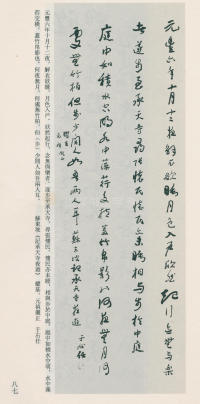 元豐六年十月十二夜解衣欲睡月色入戶欣然起行念無與樂
者遂步至承天寺尋張懷民懷民亦未寢相與步於中庭
庭中如積水空明水中藻荇交橫蓋竹柏影也何夜無月何
處無竹柏但少閒人如吾兩人耳 記承天寺夜遊 于右任
元豐六年十月十二夜，解衣欲睡，月色入戶，欣然起行。念無與樂者，遂步至承天寺，尋張懷民，懷民亦未寢，相與步於中庭。庭中如積水空明，水中藻
荇交橫，蓋竹柏影也。何夜無月，何處無竹柏，但少閒人如吾兩人耳。 蘇東坡《記承天寺夜遊》 元禎儷正 于右任
八七